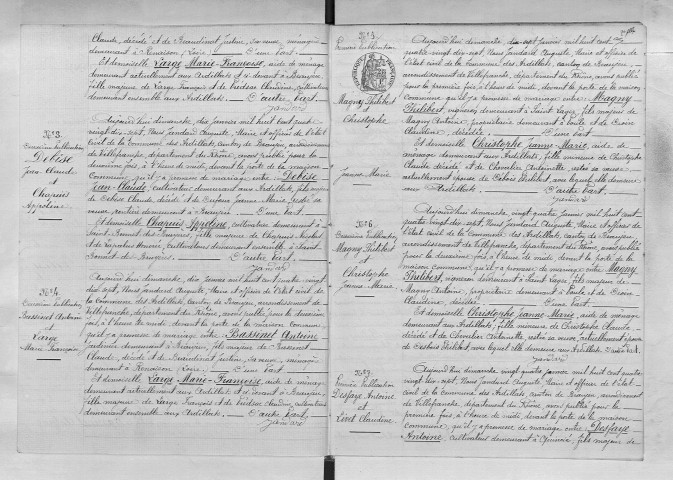 Claude, décédé et de Beaudinot Justine, sa veuve, ménagère
demeurant à Renaison, Loire. D'une part.
Et demoiselle Large Marie-Françoise, aide de ménage
demeurant actuellement aux Ardillats et ci-devant à Beaujeu,
fille majeure de Large François et de Claudine, cultivateurs
demeurant ensemble aux Ardillats. D'autre part.
Janvier
N° 3.
Deuxième Publication
Debise
Jean-Claude
et
Chapuis
Appoline
Aujourd'hui dimanche, dix janvier mil huit cent quatre
vingt dix-sept, Nous Jandard Auguste, Maire et officier de l'état
civil de la Commune des Ardillats, canton de Beaujeu, arrondissement
de Villefranche, département du Rhône, avons publié pour la
deuxième fois, à l'heure de midi, devant la porte de la maison
Commune, qu'il y a promesse de mariage entre Debise
Jean-Claude, cultivateur demeurant aux Ardillats, fils majeur
de Debise Claude, décédé et de Jeanne Marie sa
veuve, rentière demeurant à Beaujeu. D'une part.
Et demoiselle Chapuis Appoline, cultivatrice demeurant à
Saint Bonnet des Bruyères, fille majeure de Chapuis Nicolas
et de cultivateurs demeurant ensemble à Saint
Bonnet des Bruyères. D'autre part.
Janvier
N° 4.
Deuxième Publication
Bassenet Antoine
et
Large
Marie Françoise
Aujourd'hui dimanche, dix janvier mil huit cent quatre vingt
dix sept, Nous Jandard Auguste, Maire et officier de l'état civil de
la Commune des Ardillats, canton de Beaujeu, arrondissement de
Villefranche, département du Rhône, avons publié pour la deuxième
fois, à l'heure de midi, devant la porte de la maison commune
qu'il y a promesse de mariage entre Bassenet Antoine
jardinier demeurant à Beaujeu, fils majeur de Bassenet
Claude, décédé et de Beaudinot Justine, sa veuve, ménagère
demeurant à Renaison Loire. D'une part.
Et demoiselle Large Marie-Françoise, aide de ménage
demeurant actuellement aux Ardillats et ci-devant à Beaujeu,
fille majeure de Large François et de Claudine, cultivateurs
demeurant ensemble aux Ardillats. D'autre part.
Janvier
N° 5
Première Publication
Magny Philibert
et
Christophe
Jeanne-Marie
Aujourd'hui dimanche dix-sept janvier mil huit cent
quatre-vingt dix-sept, Nous Jandard Auguste, Maire et officier de
l'état civil de la Commune des Ardillats, canton de Beaujeu,
arrondissement de Villefranche, département du Rhône, avons publié
pour la première fois à l'heure de midi, devant la porte de la maison
Commune qu'il y a promesse de mariage entre Magny
Philibert, vigneron demeurant à Saint Lager, fils majeur de
Magny Antoine, propriétaire demeurant à et de
Claudine, décédée. D'une part.
Et demoiselle Christophe Jeanne Marie, aide de
ménage demeurant aux Ardillats, fille mineure de Christophe
Claude décédé et de Chevalier Antoinette, sa veuve,
actuellement épouse de Philibert, avec lequel elle demeure
aux Ardillats. D'autre part.
Janvier
N° 6.
Deuxième Publication
Magny Philibert
et
Christophe
Jeanne-Marie
Aujourd'hui dimanche, vingt quatre janvier mil huit cent
quatre-vingt dix-sept, Nous Jandard Auguste, Maire et officier de
l'état civil de la commune des Ardillats, canton de Beaujeu,
arrondissement de Villefranche, département du Rhône, avons publié
pour la deuxième fois, à l'heure de midi, devant la porte de la
maison commune, qu'il y a promesse de mariage entre Magny
Philibert, vigneron demeurant à Saint Lager, fils majeur de
Magny Antoine, propriétaire demeurant à et de
Claudine, décédée. D'une part.
Et demoiselle Christophe Jeanne Marie, aide de ménage
demeurant aux Ardillats, fille mineure de Christophe Claude
décédé et de Chevalier Antoinette, sa veuve, actuellement épouse
de Philibert, avec lequel elle demeure aux Ardillats. D'autre part.
Janvier
Première Publication
Desfaye Antoine
et
Livet Claudine
Aujourd'hui dimanche vingt quatre janvier mil huit cent quatre
vingt dix-sept, Nous Jandard Auguste, Maire et officier de l'état
civil de la Commune des Ardillats, canton de Beaujeu, arrondissement
de Villefranche, département du Rhône, avons publié pour la
première fois à l'heure de midi, devant la porte de la maison
commune, qu'il y a promesse de mariage entre Desfaye
Antoine, cultivateur demeurant à Quincié, fils majeur de